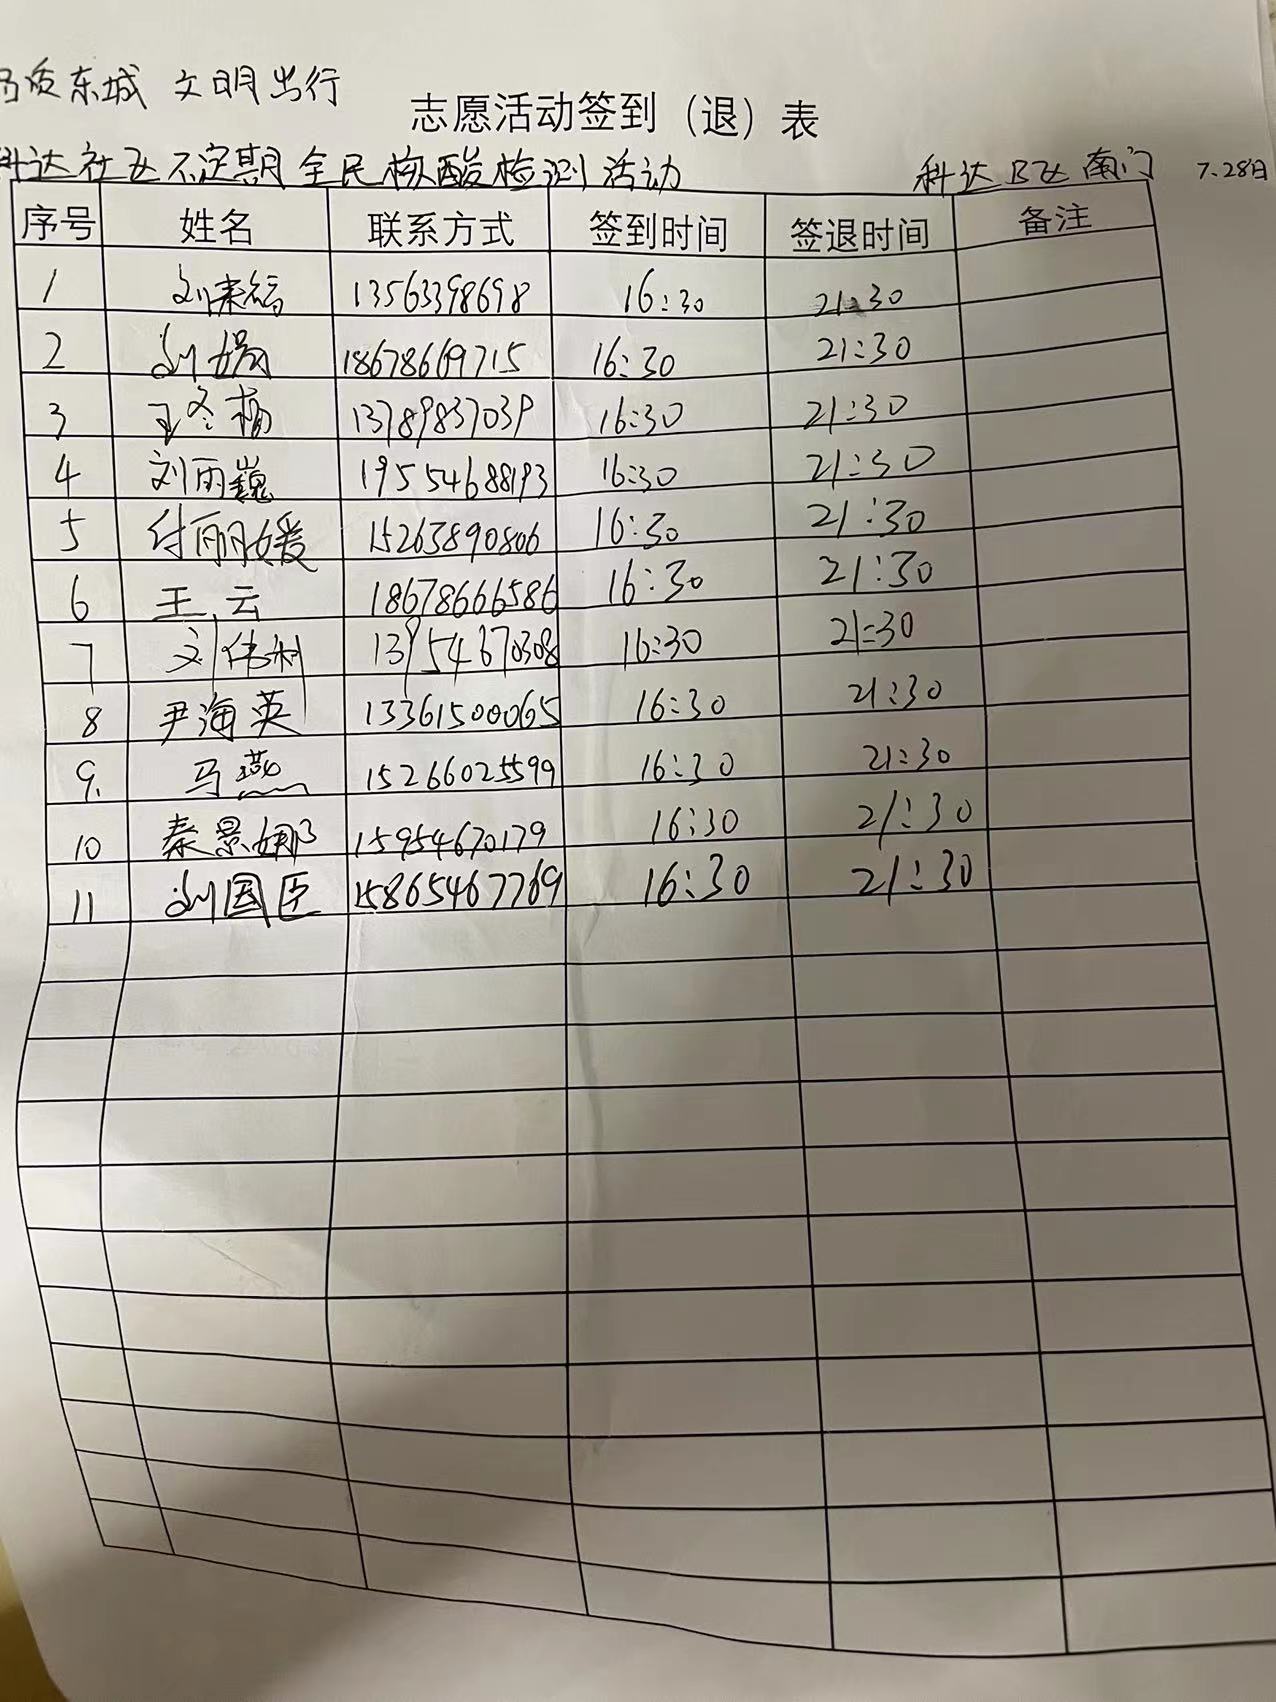 品质东城 文明出行
志愿活动签到（退）表
科达社区不定期全民核酸检测活动 科达B区南门 7.28日
序号 姓名 联系方式 签到时间 签退时间 备注
1 13563398698 16:30 21:30
2 刘娟 18678669715 16:30 21:30
3 王冬梅 13789837039 16:30 21:30
4 刘雨巍 19554688193 16:30 21:30
5 付丽媛 15263890806 16:30 21:30
6 王云 18678666586 16:30 21:30
7 刘伟利 13954670308 16:30 21:30
8 尹海英 13361500065 16:30 21:30
9. 马燕 15266025599 16:30 21:30
10 秦景娜 15954670179 16:30 21:30
11 刘国臣 15865467769 16:30 21:30